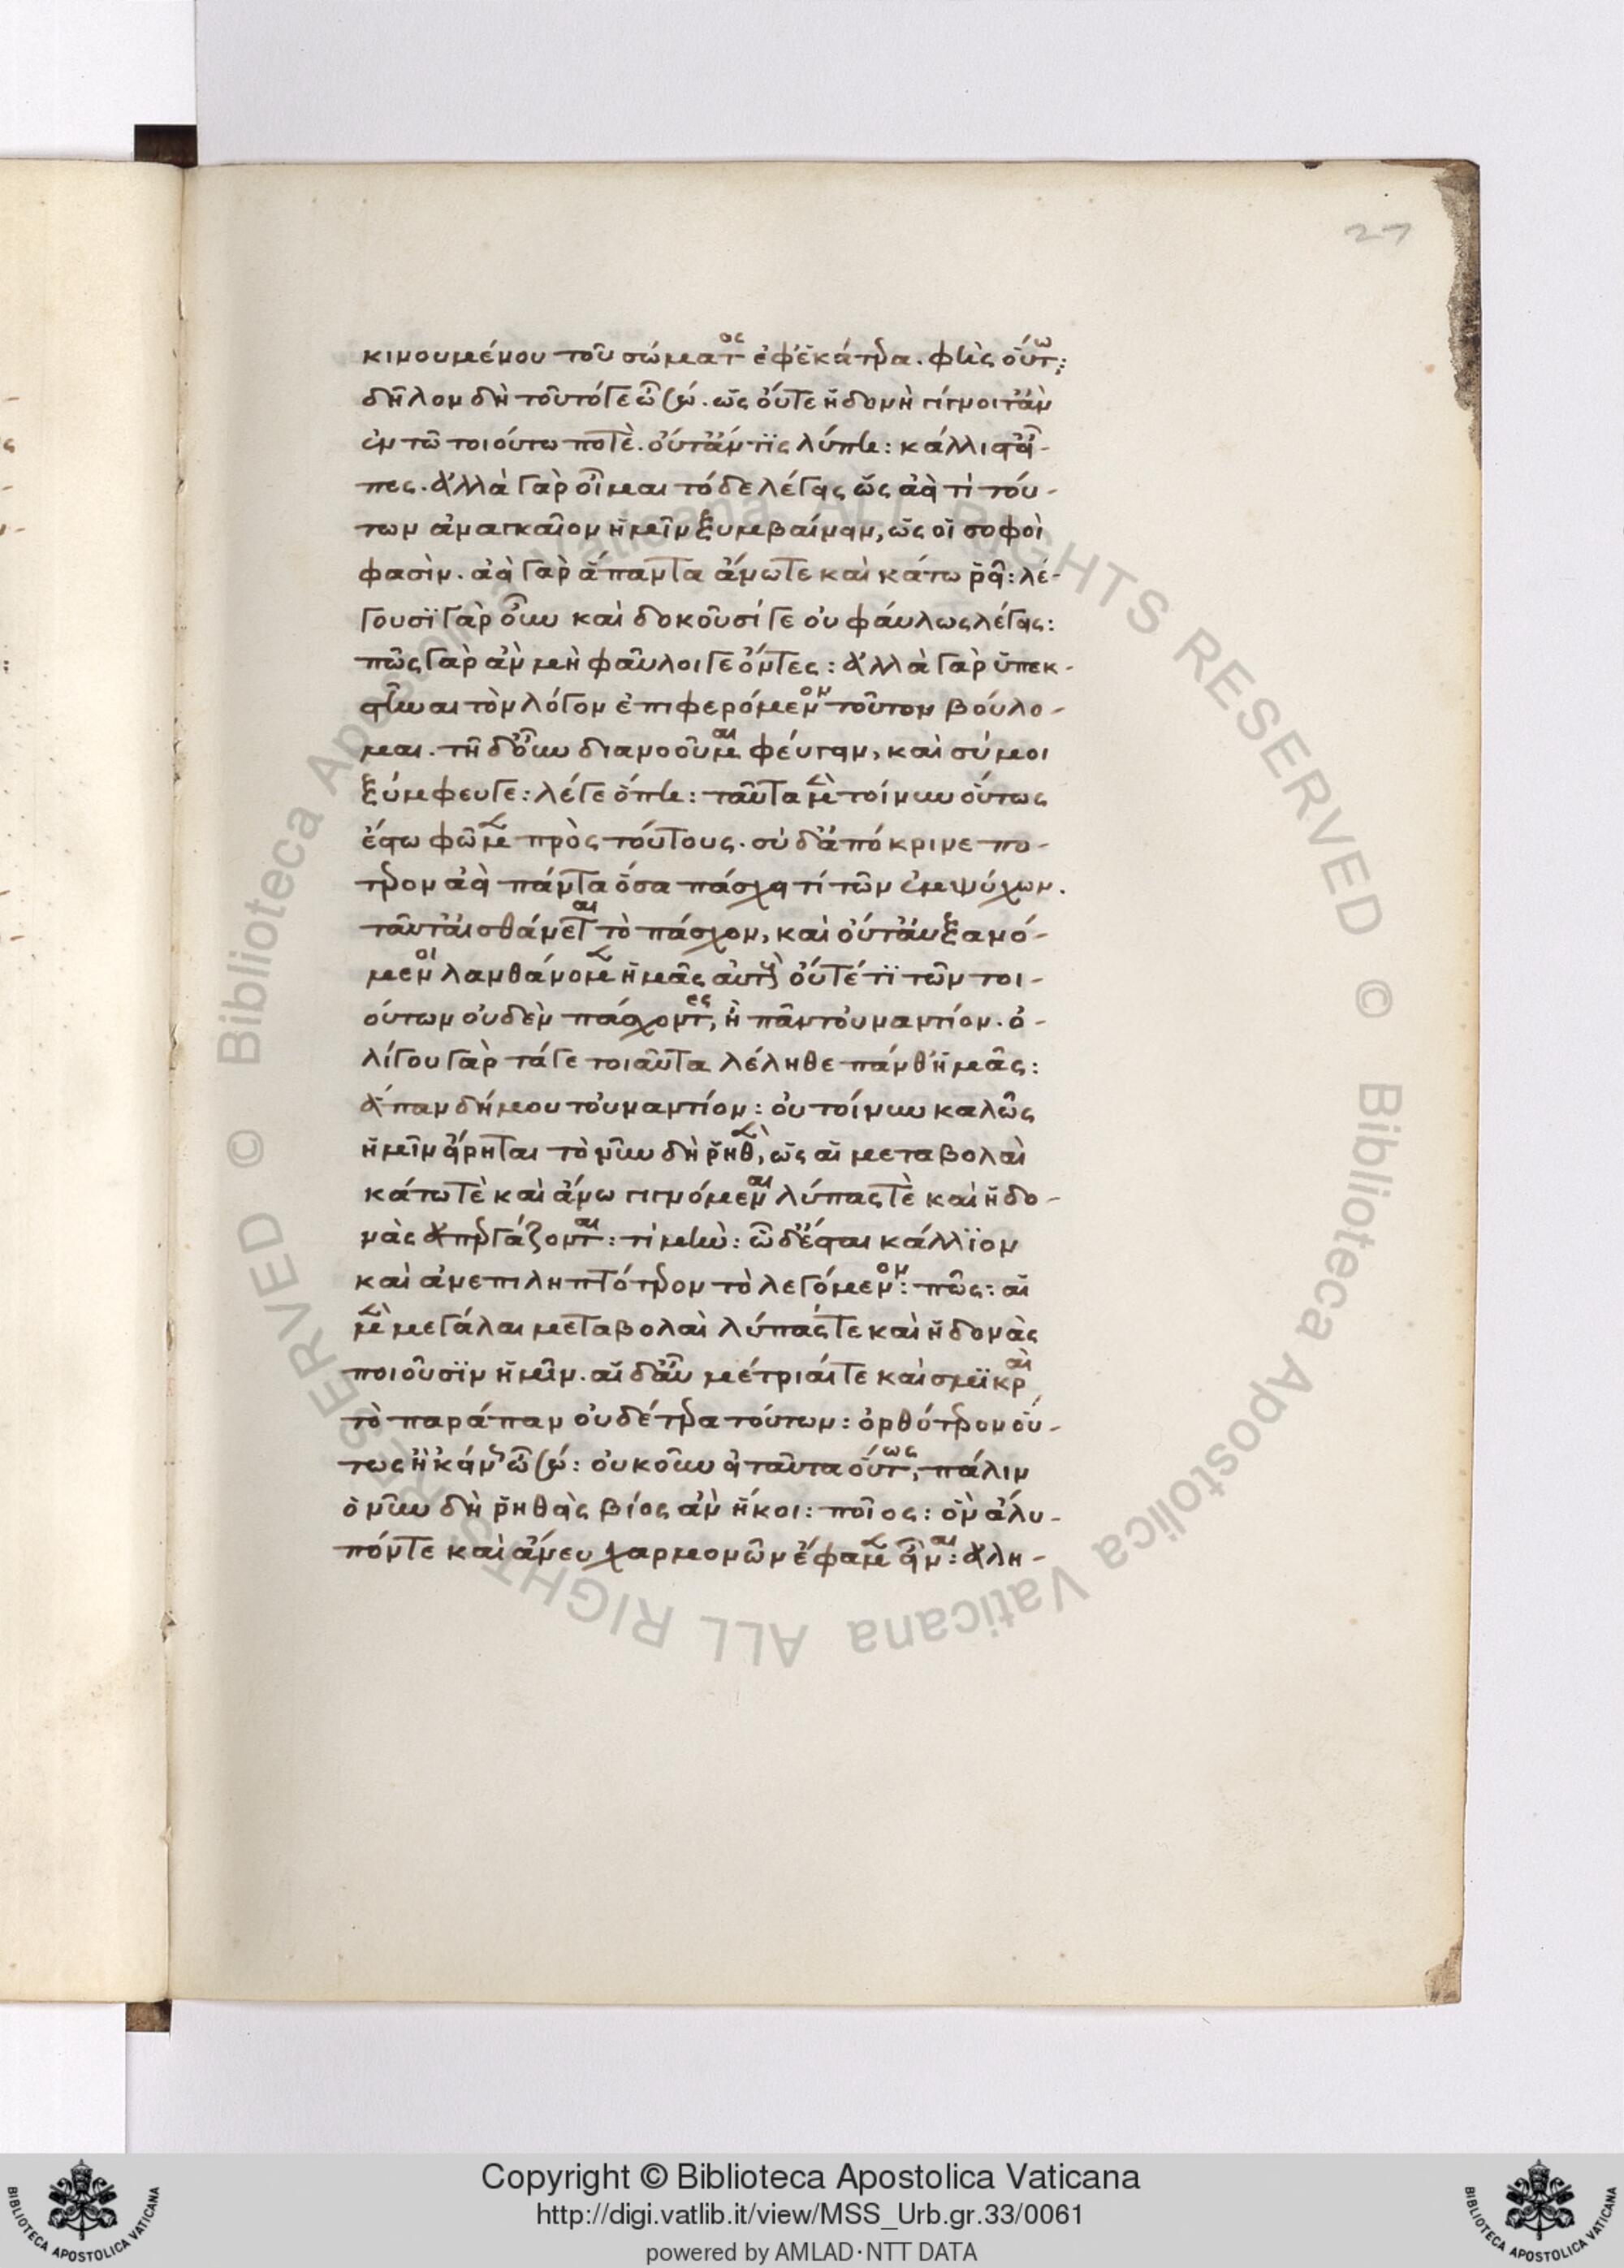 27
κινουμένου τοῦ σώματος ἐφ' ἑκάτερα. φὴς οὕτω;
δῆλον δὴ τοῦτό γε ὦ σώ. ὡς οὔτε ἡδονὴ γίγνοιτ' ἂν
ἐν τῶ τοιούτω ποτὲ. οὔτ' ἄν τις λύπη: κάλλιστ' εἶ-
πες. ἀλλὰ γὰρ οἶμαι τόδε λέγεις ὡς ἀεὶ τὶ τού-
των ἀναγκαῖον ἡμῖν ξυμβαίνειν, ὡς οἱ σοφοὶ
φασὶν. ἀεὶ γὰρ ἅπαντα ἄνω τε καὶ κάτω ῥεῖ: λέ-
γουσι γὰρ οὖν καὶ δοκοῦσί γε οὐ φαύλως λέγειν:
πῶς γὰρ ἂν μὴ φαῦλοι γε ὄντες: ἀλλὰ γὰρ ὑπεκ-
στῆναι τὸν λόγον ἐπιφερόμενον τοῦτον βούλο-
μαι. τῆ δ' οὖν διανοοῦμαι φεύγειν, καὶ σύ μοι
ξύμφευγε: λέγε ὅπη: ταῦτα μὲν τοίνυν οὕτως
ἔστω φῶμεν πρὸς τούτους. σὺ δ' ἀπόκριναι πό-
τερον ἀεὶ πάντα ὅσα πάσχει τί τῶν ἐμψύχων.
ταῦτ' αἰσθάνεται τὸ πάσχον, καὶ οὔτ' αὐξανό-
μενοι λανθάνομεν ἡμᾶς αὐτοὺς οὔτέ τι τῶν τοι-
ούτων οὐδὲν πάσχοντες, ἢ πᾶν τοὐναντίον. ὀ-
λίγου γὰρ τά γε τοιαῦτα λέληθε πάνθ' ἡμᾶς:
ἅπαν δήπου τοὐναντίον: οὐ τοίνυν καλῶς
ἡμῖν εἴρηται τὸ νῦν δὴ ῥηθὲν, ὡς αἱ μεταβολαὶ
κάτω τὲ καὶ ἄνω γιγνόμεναι λύπας τὲ καὶ ἡδο-
νὰς ἀπεργάζονται: τί μὴν: ὧδ' ἔσται κάλλιον
καὶ ἀνεπιληπτότερον τὸ λεγόμενον: πῶς: αἱ
μὲν μεγάλαι μεταβολαὶ λύπάς τε καὶ ἡδονὰς
ποιοῦσιν ἡμῖν. αἱ δ' αὖ μέτριαί τε καὶ σμικραὶ
τὸ παράπαν οὐδέτερα τούτων: ὀρθότερον οὕ-
τως ἢ 'κείνως ὦ σώ: οὐκοῦν εἰ ταῦτα οὕτως, πάλιν
ὁ νῦν δὴ ῥηθεὶς βίος ἂν ἥκοι: ποῖος: ὃν ἄλυ-
πόν τε καὶ ἄνευ χαρμονῶν ἔφαμεν εἶναι: ἀλη-
Copyright © Biblioteca Apostolica Vaticana
http://digi.vatlib.it/view/MSS_Urb.gr.33/0061
powered by AMLAD·NTT DATA
© Biblioteca Apostolica Vaticana ALL RIGHTS RESERVED © Biblioteca Apostolica Vaticana ALL RIGHTS RESERVED
BIBLIOTECA APOSTOLICA VATICANA
BIBLIOTECA APOSTOLICA VATICANA